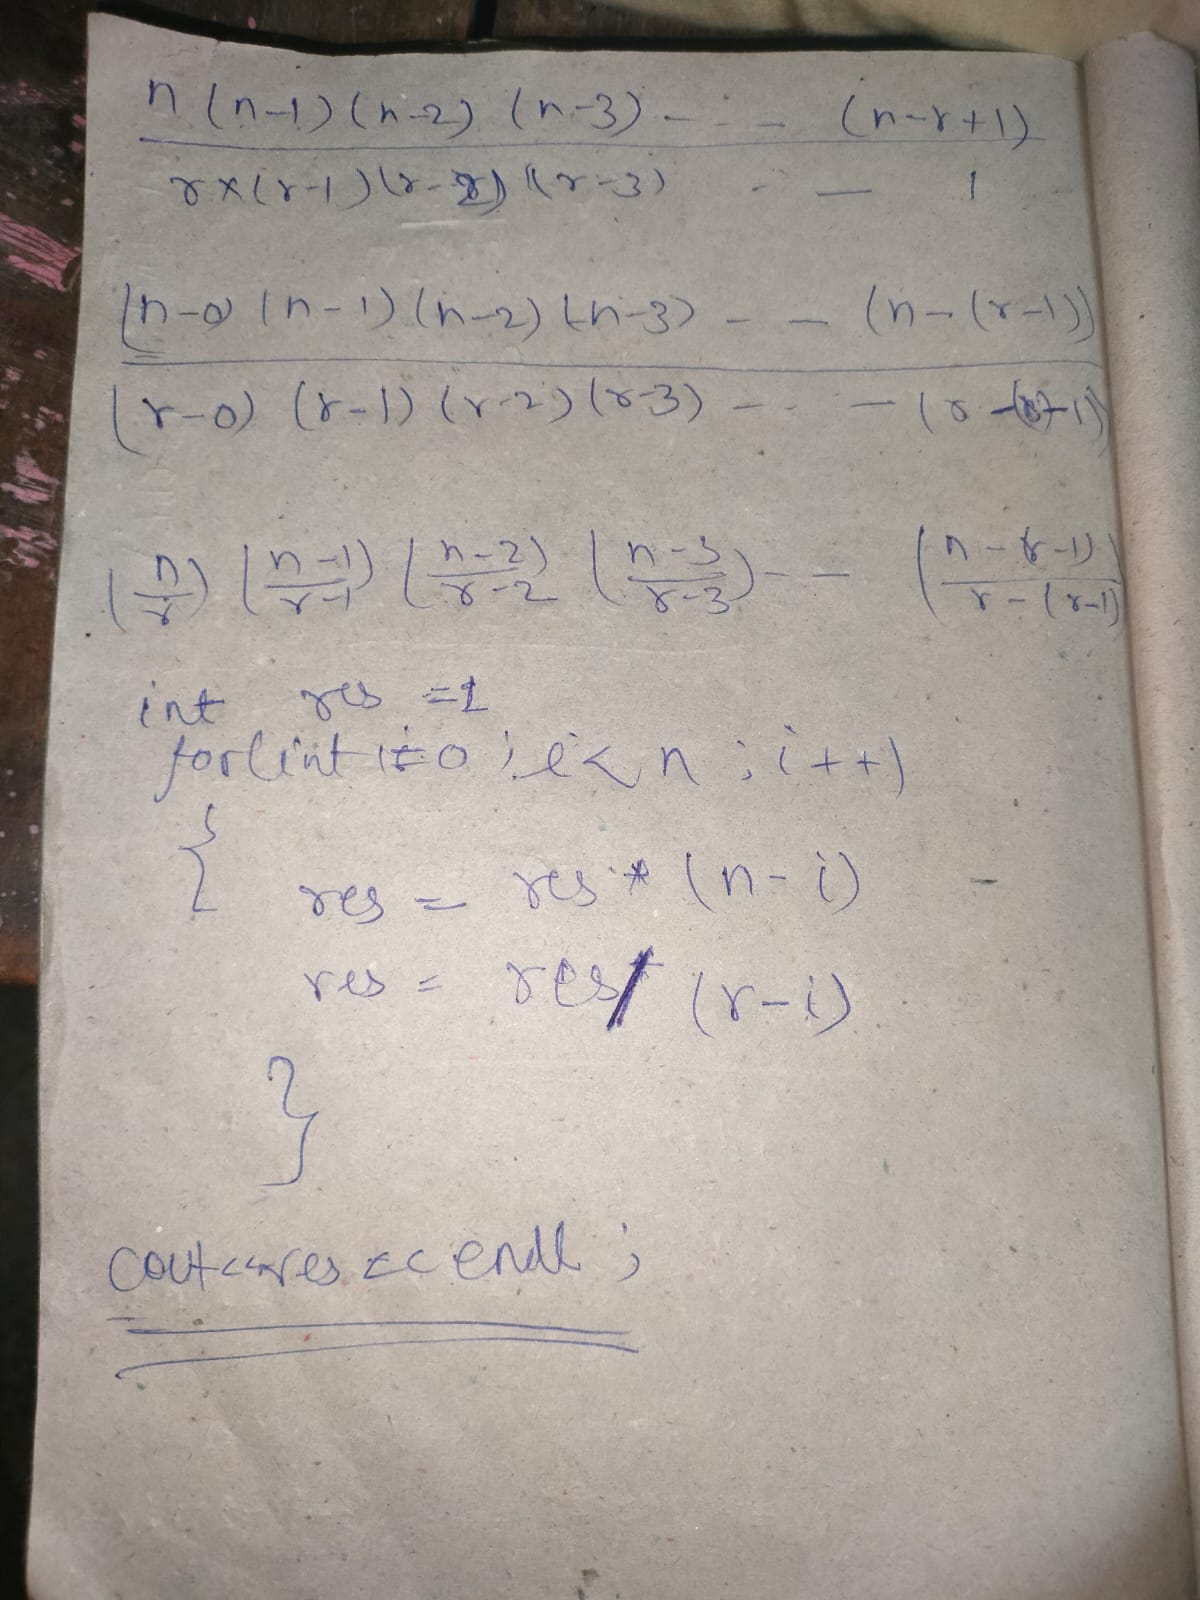 n (n-1) (n-2) (n-3) - - - (n-r+1)
r×(r-1)(r-2)(r-3) - - 1
(n-0) (n-1) (n-2) (n-3) - - (n-(r-1))
(r-0) (r-1) (r-2) (r-3) - - - (r-(r-1))
(n/r) (n-1/r-1) (n-2/r-2) (n-3/r-3) - - (n-(r-1)/r-(r-1))
int res =1
for(int i=0; i<n; i++)
{
res = res * (n-i)
res = res / (r-i)
}
cout<<res<<endl;